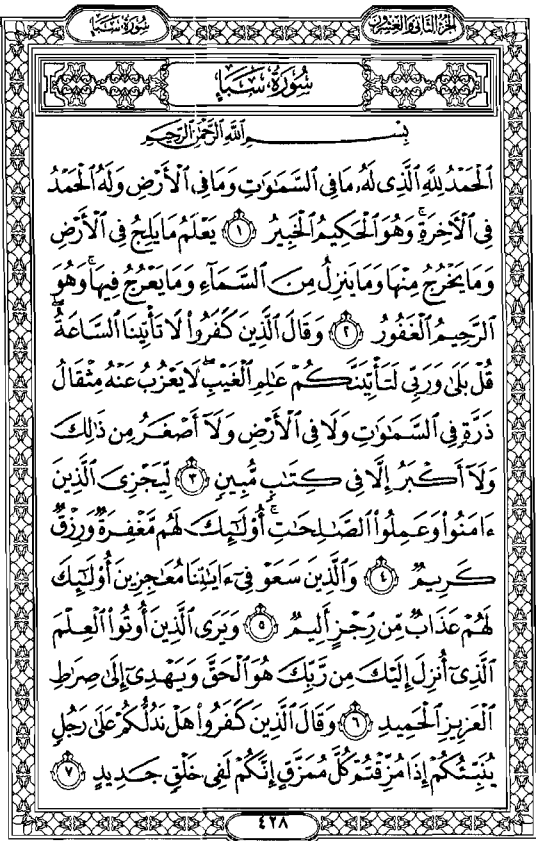 سُورَةُ سَبَإٍ
الجُزْءُ الثَّانِي وَالعِشْرُونَ
سُورَةُ سَبَإٍ
بِسْمِ ٱللَّهِ ٱلرَّحْمَٰنِ ٱلرَّحِيمِ
ٱلْحَمْدُ لِلَّهِ ٱلَّذِى لَهُۥ مَا فِى ٱلسَّمَٰوَٰتِ وَمَا فِى ٱلْأَرْضِ وَلَهُ ٱلْحَمْدُ
فِى ٱلْءَاخِرَةِ ۚ وَهُوَ ٱلْحَكِيمُ ٱلْخَبِيرُ ١ يَعْلَمُ مَا يَلِجُ فِى ٱلْأَرْضِ
وَمَا يَخْرُجُ مِنْهَا وَمَا يَنزِلُ مِنَ ٱلسَّمَآءِ وَمَا يَعْرُجُ فِيهَا ۚ وَهُوَ
ٱلرَّحِيمُ ٱلْغَفُورُ ٢ وَقَالَ ٱلَّذِينَ كَفَرُوا۟ لَا تَأْتِينَا ٱلسَّاعَةُ ۖ
قُلْ بَلَىٰ وَرَبِّى لَتَأْتِيَنَّكُمْ عَٰلِمِ ٱلْغَيْبِ ۖ لَا يَعْزُبُ عَنْهُ مِثْقَالُ
ذَرَّةٍ فِى ٱلسَّمَٰوَٰتِ وَلَا فِى ٱلْأَرْضِ وَلَآ أَصْغَرُ مِن ذَٰلِكَ
وَلَآ أَكْبَرُ إِلَّا فِى كِتَٰبٍ مُّبِينٍ ٣ لِّيَجْزِىَ ٱلَّذِينَ
ءَامَنُوا۟ وَعَمِلُوا۟ ٱلصَّٰلِحَٰتِ ۚ أُو۟لَٰٓئِكَ لَهُم مَّغْفِرَةٌ وَرِزْقٌ
كَرِيمٌ ٤ وَٱلَّذِينَ سَعَوْ فِىٓ ءَايَٰتِنَا مُعَٰجِزِينَ أُو۟لَٰٓئِكَ
لَهُمْ عَذَابٌ مِّن رِّجْزٍ أَلِيمٌ ٥ وَيَرَى ٱلَّذِينَ أُوتُوا۟ ٱلْعِلْمَ
ٱلَّذِىٓ أُنزِلَ إِلَيْكَ مِن رَّبِّكَ هُوَ ٱلْحَقَّ وَيَهْدِىٓ إِلَىٰ صِرَٰطِ
ٱلْعَزِيزِ ٱلْحَمِيدِ ٦ وَقَالَ ٱلَّذِينَ كَفَرُوا۟ هَلْ نَدُلُّكُمْ عَلَىٰ رَجُلٍ
يُنَبِّئُكُمْ إِذَا مُزِّقْتُمْ كُلَّ مُمَزَّقٍ إِنَّكُمْ لَفِى خَلْقٍ جَدِيدٍ ٧
٤٢٨